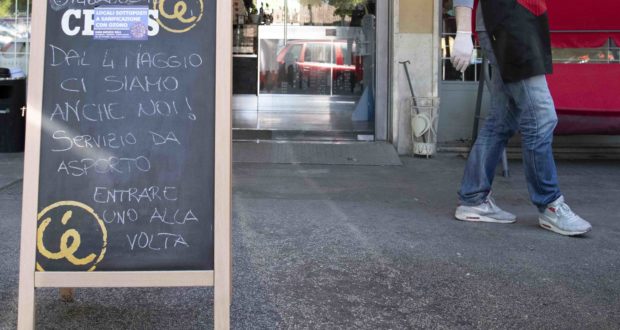 LOCALI SOTTOPOSTI
A SANIFICAZIONE
CON OZONO
è
DAL 4 MAGGIO
CI SIAMO
ANCHE NOI!
SERVIZIO DA
ASPORTO
ENTRARE
UNO ALLA
VOLTA
è